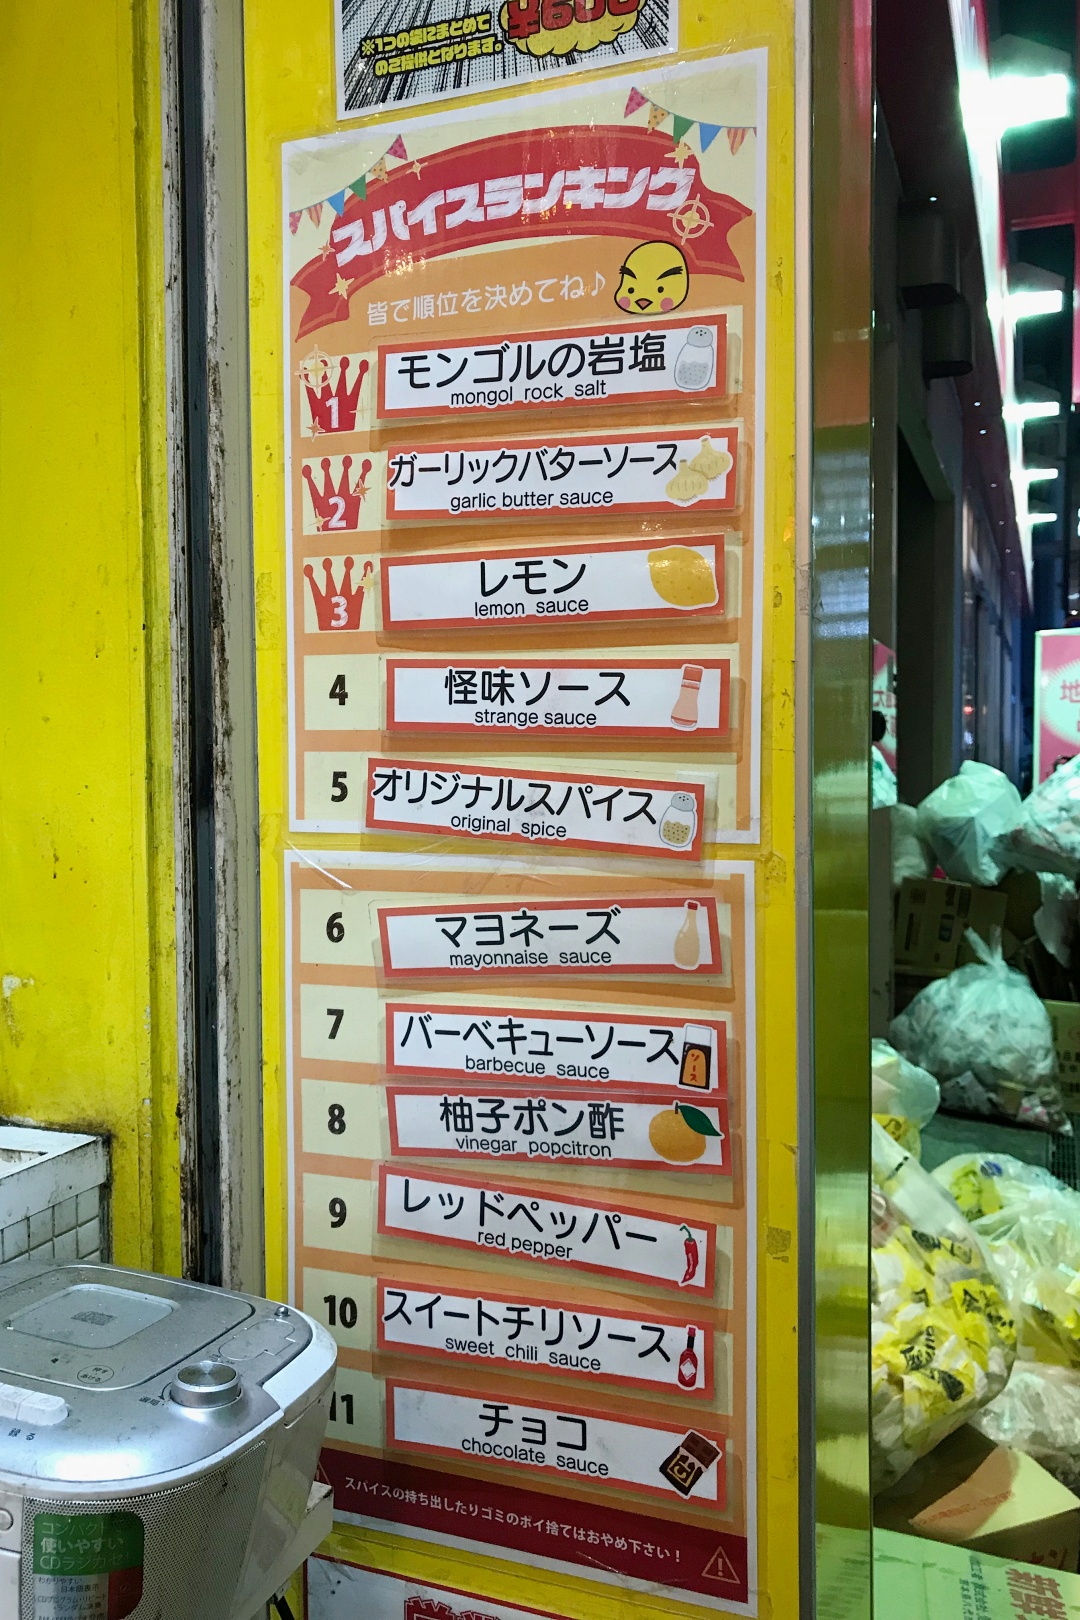 ※1つの袋にまとめて
のご提供となります。
¥600
スパイスランキング
皆で順位を決めてね♪
1
モンゴルの岩塩
mongol rock salt
2
ガーリックバターソース
garlic butter sauce
3
レモン
lemon sauce
4
怪味ソース
strange sauce
5
オリジナルスパイス
original spice
6
マヨネーズ
mayonnaise sauce
7
バーベキューソース
barbecue sauce
ソース
8
柚子ポン酢
vinegar popcitron
9
レッドペッパー
red pepper
10
スイートチリソース
sweet chili sauce
11
チョコ
chocolate sauce
スパイスの持ち出したりゴミのポイ捨てはおやめ下さい！
コンパクト
使いやすい
CDラジカセ
わかりやすい
日本語表示
地